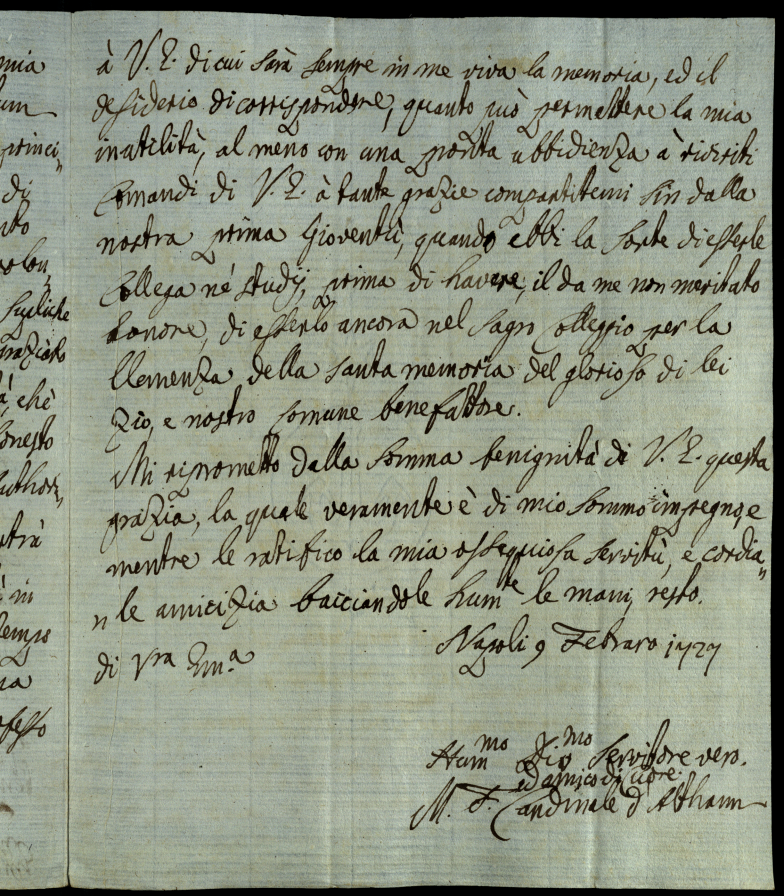 à V. E. di cui sarà sempre in me viva la memoria, ed il
desiderio di corrispondere, quanto può permettere la mia
inutilità, al meno con una pronta ubbidienza à riveriti
Comandi di V. E. à tante grazie compartitemi sin dalla
nostra prima Gioventù, quando ebbi la sorte di esserle
Collega ne' studij, prima di havere, il da me non meritato
honore, di esserlo ancora nel Sagro Colleggio per la
Clemenza della santa memoria del glorioso di lei
Zio, e nostro comune benefattore.
Mi riprometto dalla somma benignità di V. E. questa
grazia, la quale veramente è di mio sommo impegno, e
mentre le ratifico la mia ossequiosa servitù, e cordia„
„le amicizia bacciandole hum.te le mani, resto.
di Vra Em.a
Napoli 9 Febraro 1727
Hum.mo Div.mo Servitore vero.
ed amico di cuore.
M. F. Cardinale d'Althann
mia
princi„
di
che
in
tempo